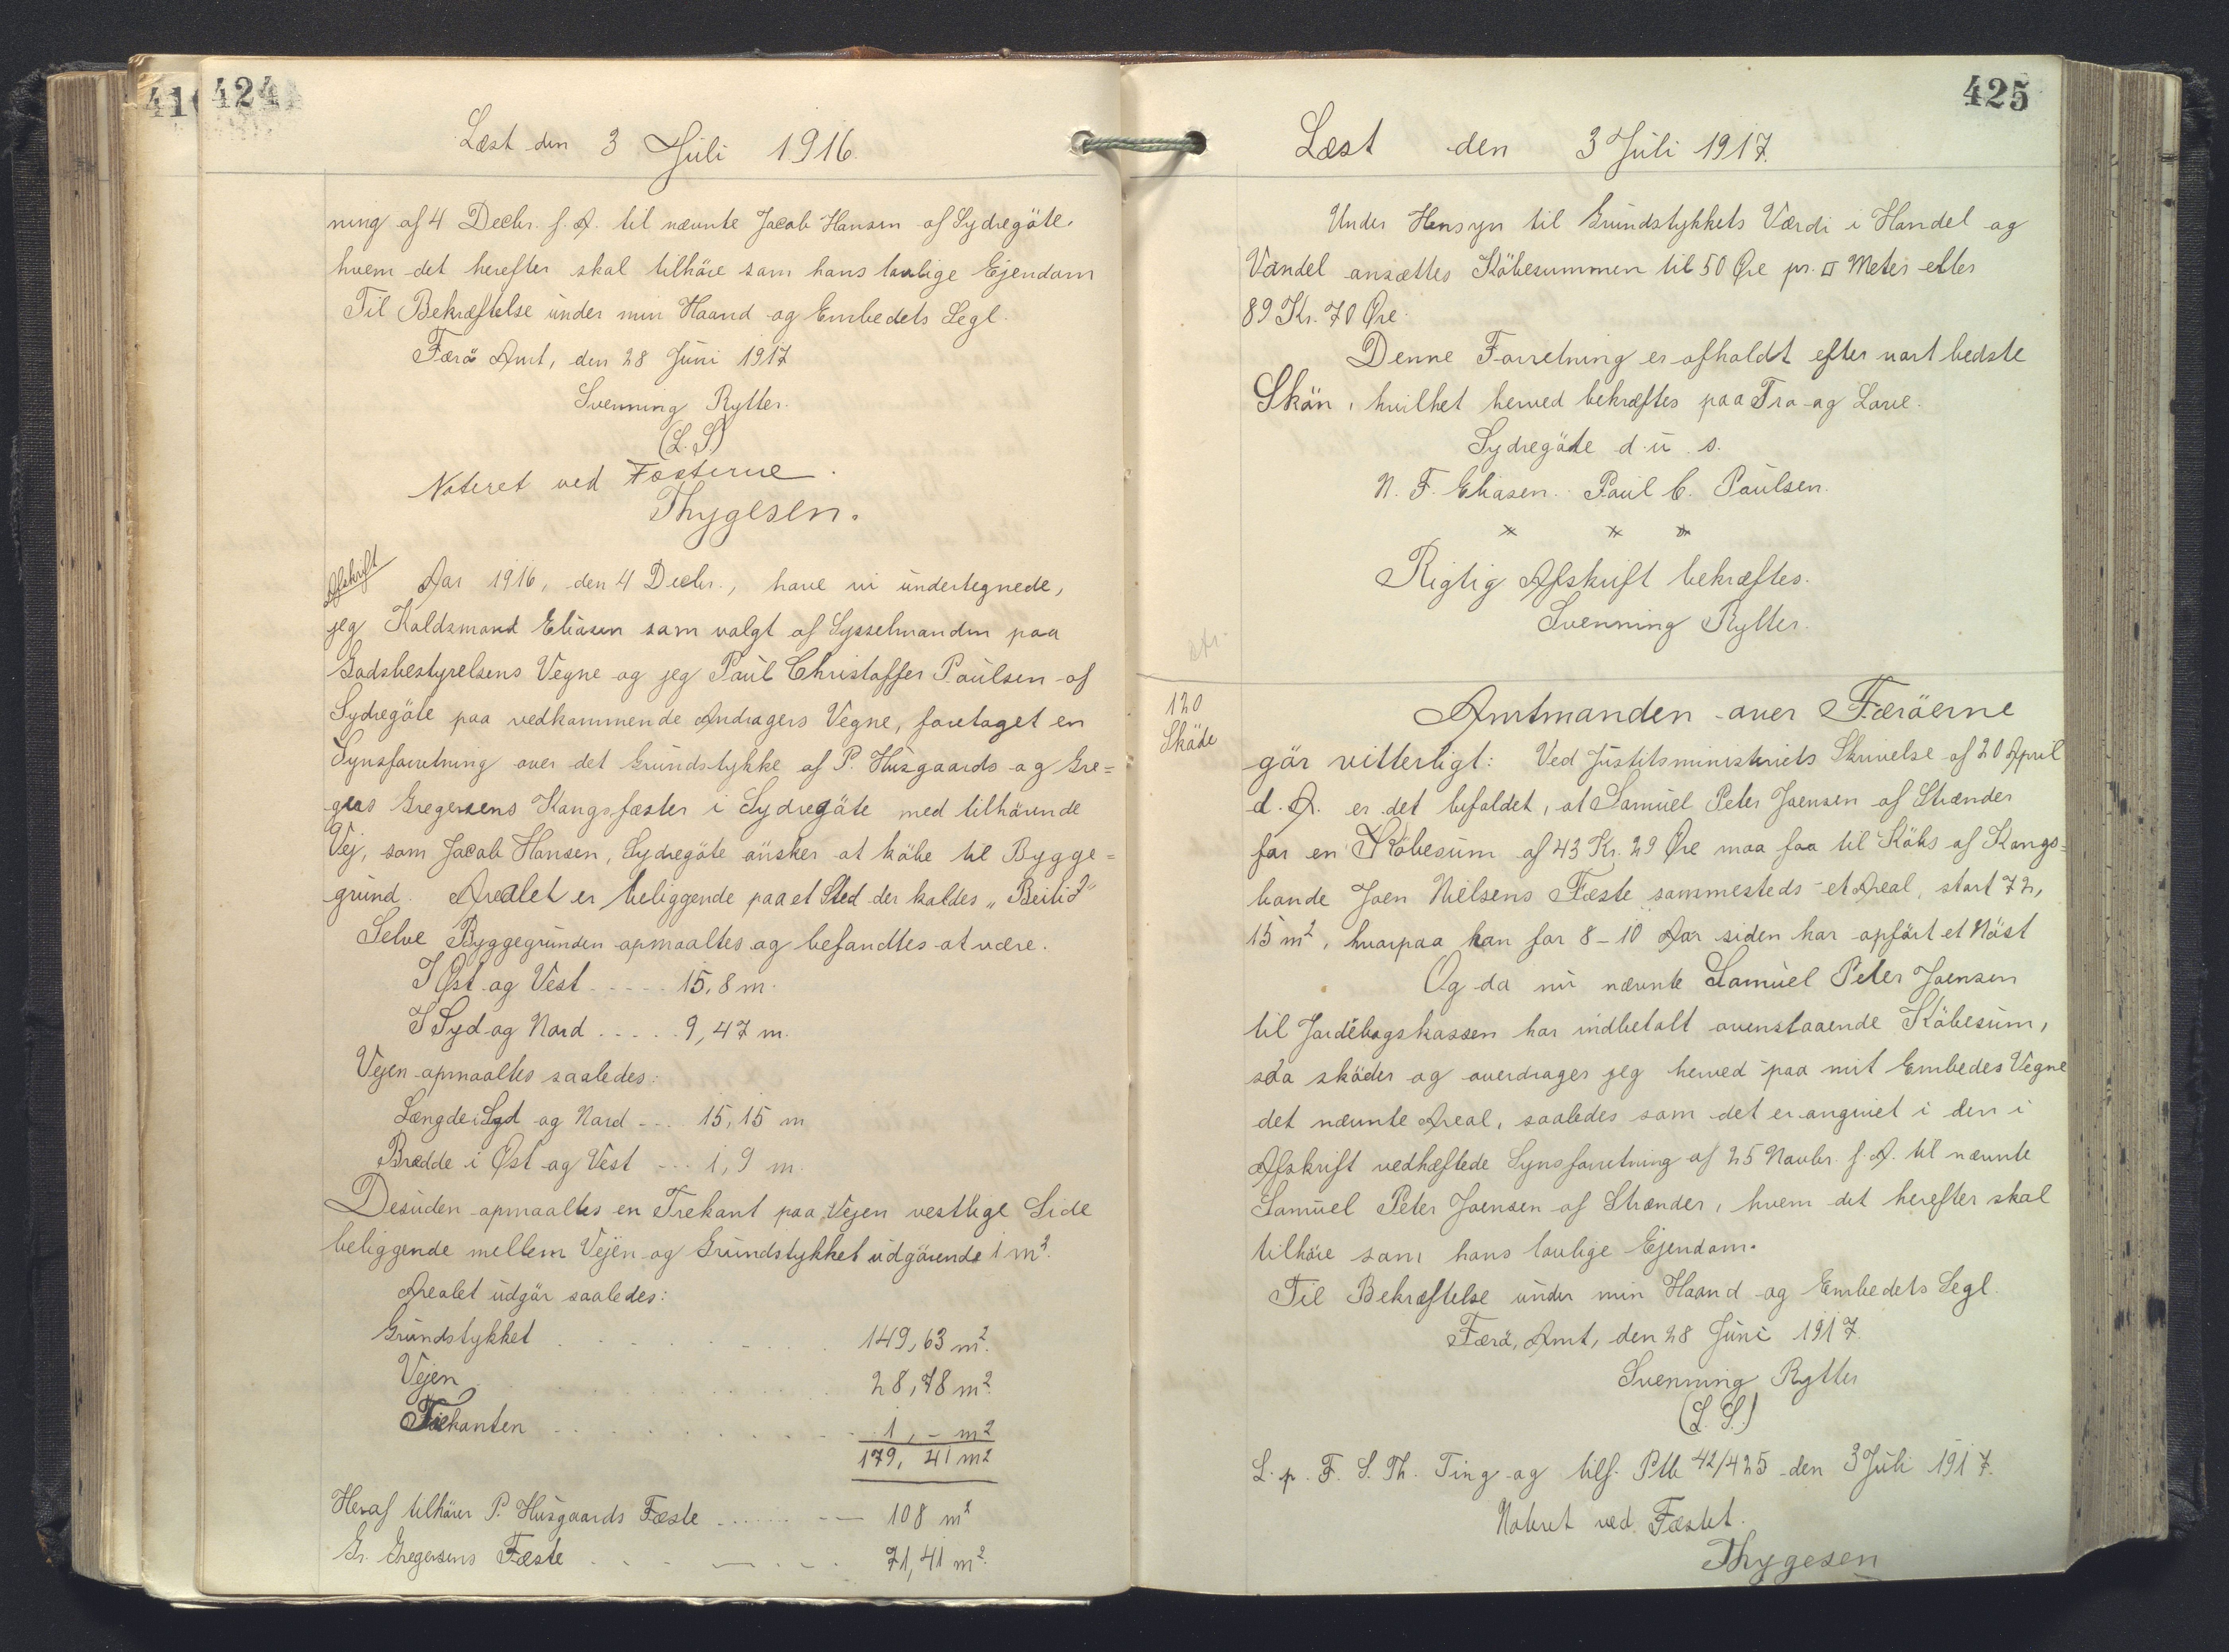 41
424
Læst den 3 Juli 1916.
ning af 4 Decbr. f. A. til nævnte Jacob Hansen af Sydregöte,
hvem det herefter skal tilhöre som hans lovlige Ejendom
Til Bekræftelse under min Haand og Embedets Segl.
Færö Amt, den 28 Juni 1917
Svenning Rytter.
(L.S)
Noteret ved Fæsterne.
Thygesen.
Afskrift
Aar 1916, den 4 Decbr., have vi undertegnede,
jeg Koldsmand Eliasen som valgt af Sysselmanden paa
Godsbestyrelsens Vegne og jeg Paul Christoffer Paulsen af
Sydregöte paa vedkommende Andragers Vegne, foretaget en
Synsforretning over det Grundstykke af P. Husgaards og Gre=
gers Gregersens Kongsfæster i Sydregöte med tilhörende
Vej, som Jacob Hansen, Sydregöte önsker at köbe til Bygge=
grund. Arealet er beliggende paa et Sted der kaldes „Beitið"
Selve Byggegrunden opmaaltes og befandtes at være.
I Øst og Vest ----- 15,8 m.
I Syd og Nord ..... 9,47 m.
Vejen opmaaltes saaledes:
Længde i Syd og Nord --.. 15,15 m
Bredde i Øst og Vest --.. 1,9 m.
Desuden opmaaltes en Trekant paa Vejen vestlige Side
beliggende mellem Vejen og Grundstykket udgörende 1 m².
Arealet udgör saaledes:
Grundstykket 149,63 m².
Vejen 28,78 m².
Trekanten 1,- m²
179,41 m²
Heraf tilhörer P. Husgaards Fæste ..... -- 108 m²
Gr. Gregersens Fæste 71,41 m².
425
Læst den 3 Juli 1917.
Under Hensyn til Grundstykkets Værdi i Handel og
Vandel ansættes Köbesummen til 50 Øre pr. □ Meter eller
89 Kr. 70 Øre.
Denne Forretning er afholdt efter vort bedste
Skön, hvilket herved bekræftes paa Tro og Love.
Sydregöte d. u. s.
N. F. Eliasen. Paul C. Paulsen.
x x x
Rigtig Afskrift bekræftes.
Svenning Rytter.
120
Sköde
Amtmanden over Færöerne
gör vitterligt: Ved Justitsministeriets Skrivelse af 20 April
d. A. er det befoldet, at Samuel Peter Joensen af Strænder
for en Köbesum af 43 Kr. 29 Øre maa faa til Köbs af Kongs=
bonde Joen Nielsens Fæste sammesteds et Areal, stort 72,
15 m², hvorpaa han for 8-10 Aar siden har opfört et Nöst
Og da nu nævnte Samuel Peter Joensen
til Jordebogskassen har indbetalt ovenstaaende Köbesum,
saa sköder og overdrager jeg herved paa mit Embedes Vegne
det nævnte Areal, saaledes som det er angivet i den i
Afskrift vedhæftede Synsforretning af 25 Novbr. f. A. til nævnte
Samuel Peter Joensen af Strænder, hvem det herefter skal
tilhöre som hans lovlige Ejendom.
Til Bekræftelse under min Haand og Embedets Segl.
Færö, Amt, den 28 Juni 1917.
Svenning Rytter
(L.S.)
L. p. F. S. Th. Ting og tilf. Ptb 42/425 den 3 Juli 1917.
Noteret ved Fæstet.
Thygesen